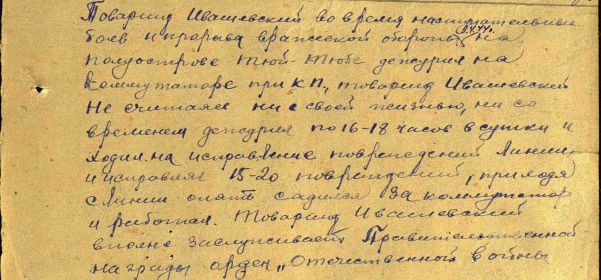 Товарищ Ивашевский во время наступательных
боев и прорыва вражеской обороны на
полуострове Тюй-Тюбе дежурил на
коммутаторе при КП, товарищ Ивашевский
не считаяся ни с своей жизнью, ни со
временем дежурил по 16-18 часов в сутки и
ходил на исправление повреждений линии,
и исправлял 15-20 повреждений, приходя
с линии опять садился за коммутатор
и работал. Товарищ Ивашевский
вполне заслуживает Правительственной
награды орден „Отечественной войны